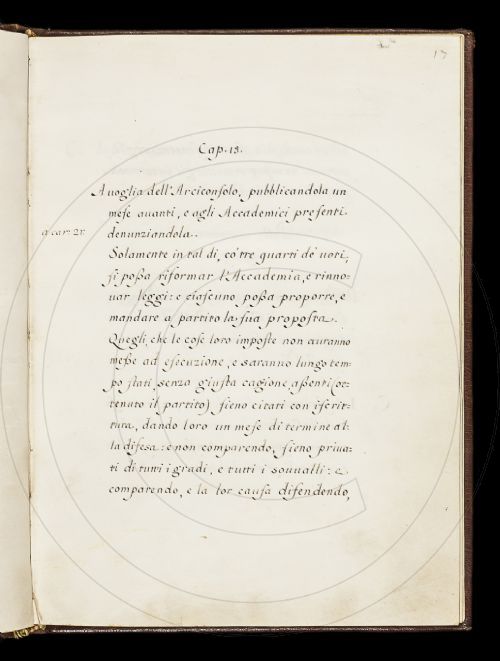 17
Cap. 13.
A uoglia dell'Arciconsolo, pubblicandola un
mese auanti, e agli Accademici presenti
denunziandola.
a car: 21.
Solamente in tal dì, co' tre quarti de' uoti,
si possa riformar l'Accademia, e rinno=
uar leggi: e ciascuno possa proporre, e
mandare a partito la sua proposta.
Quegli, che le cose loro imposte non auranno
messe ad esecuzione, e saranno lungo tem=
po stati senza giusta cagione assenti (ot=
tenuto il partito) sieno citati con iscrit=
tura, dando loro un mese di termine al=
la difesa: e non comparendo, sieno priua=
ti di tutti i gradi, e tutti i souualli: e
comparendo, e la lor causa difendendo,